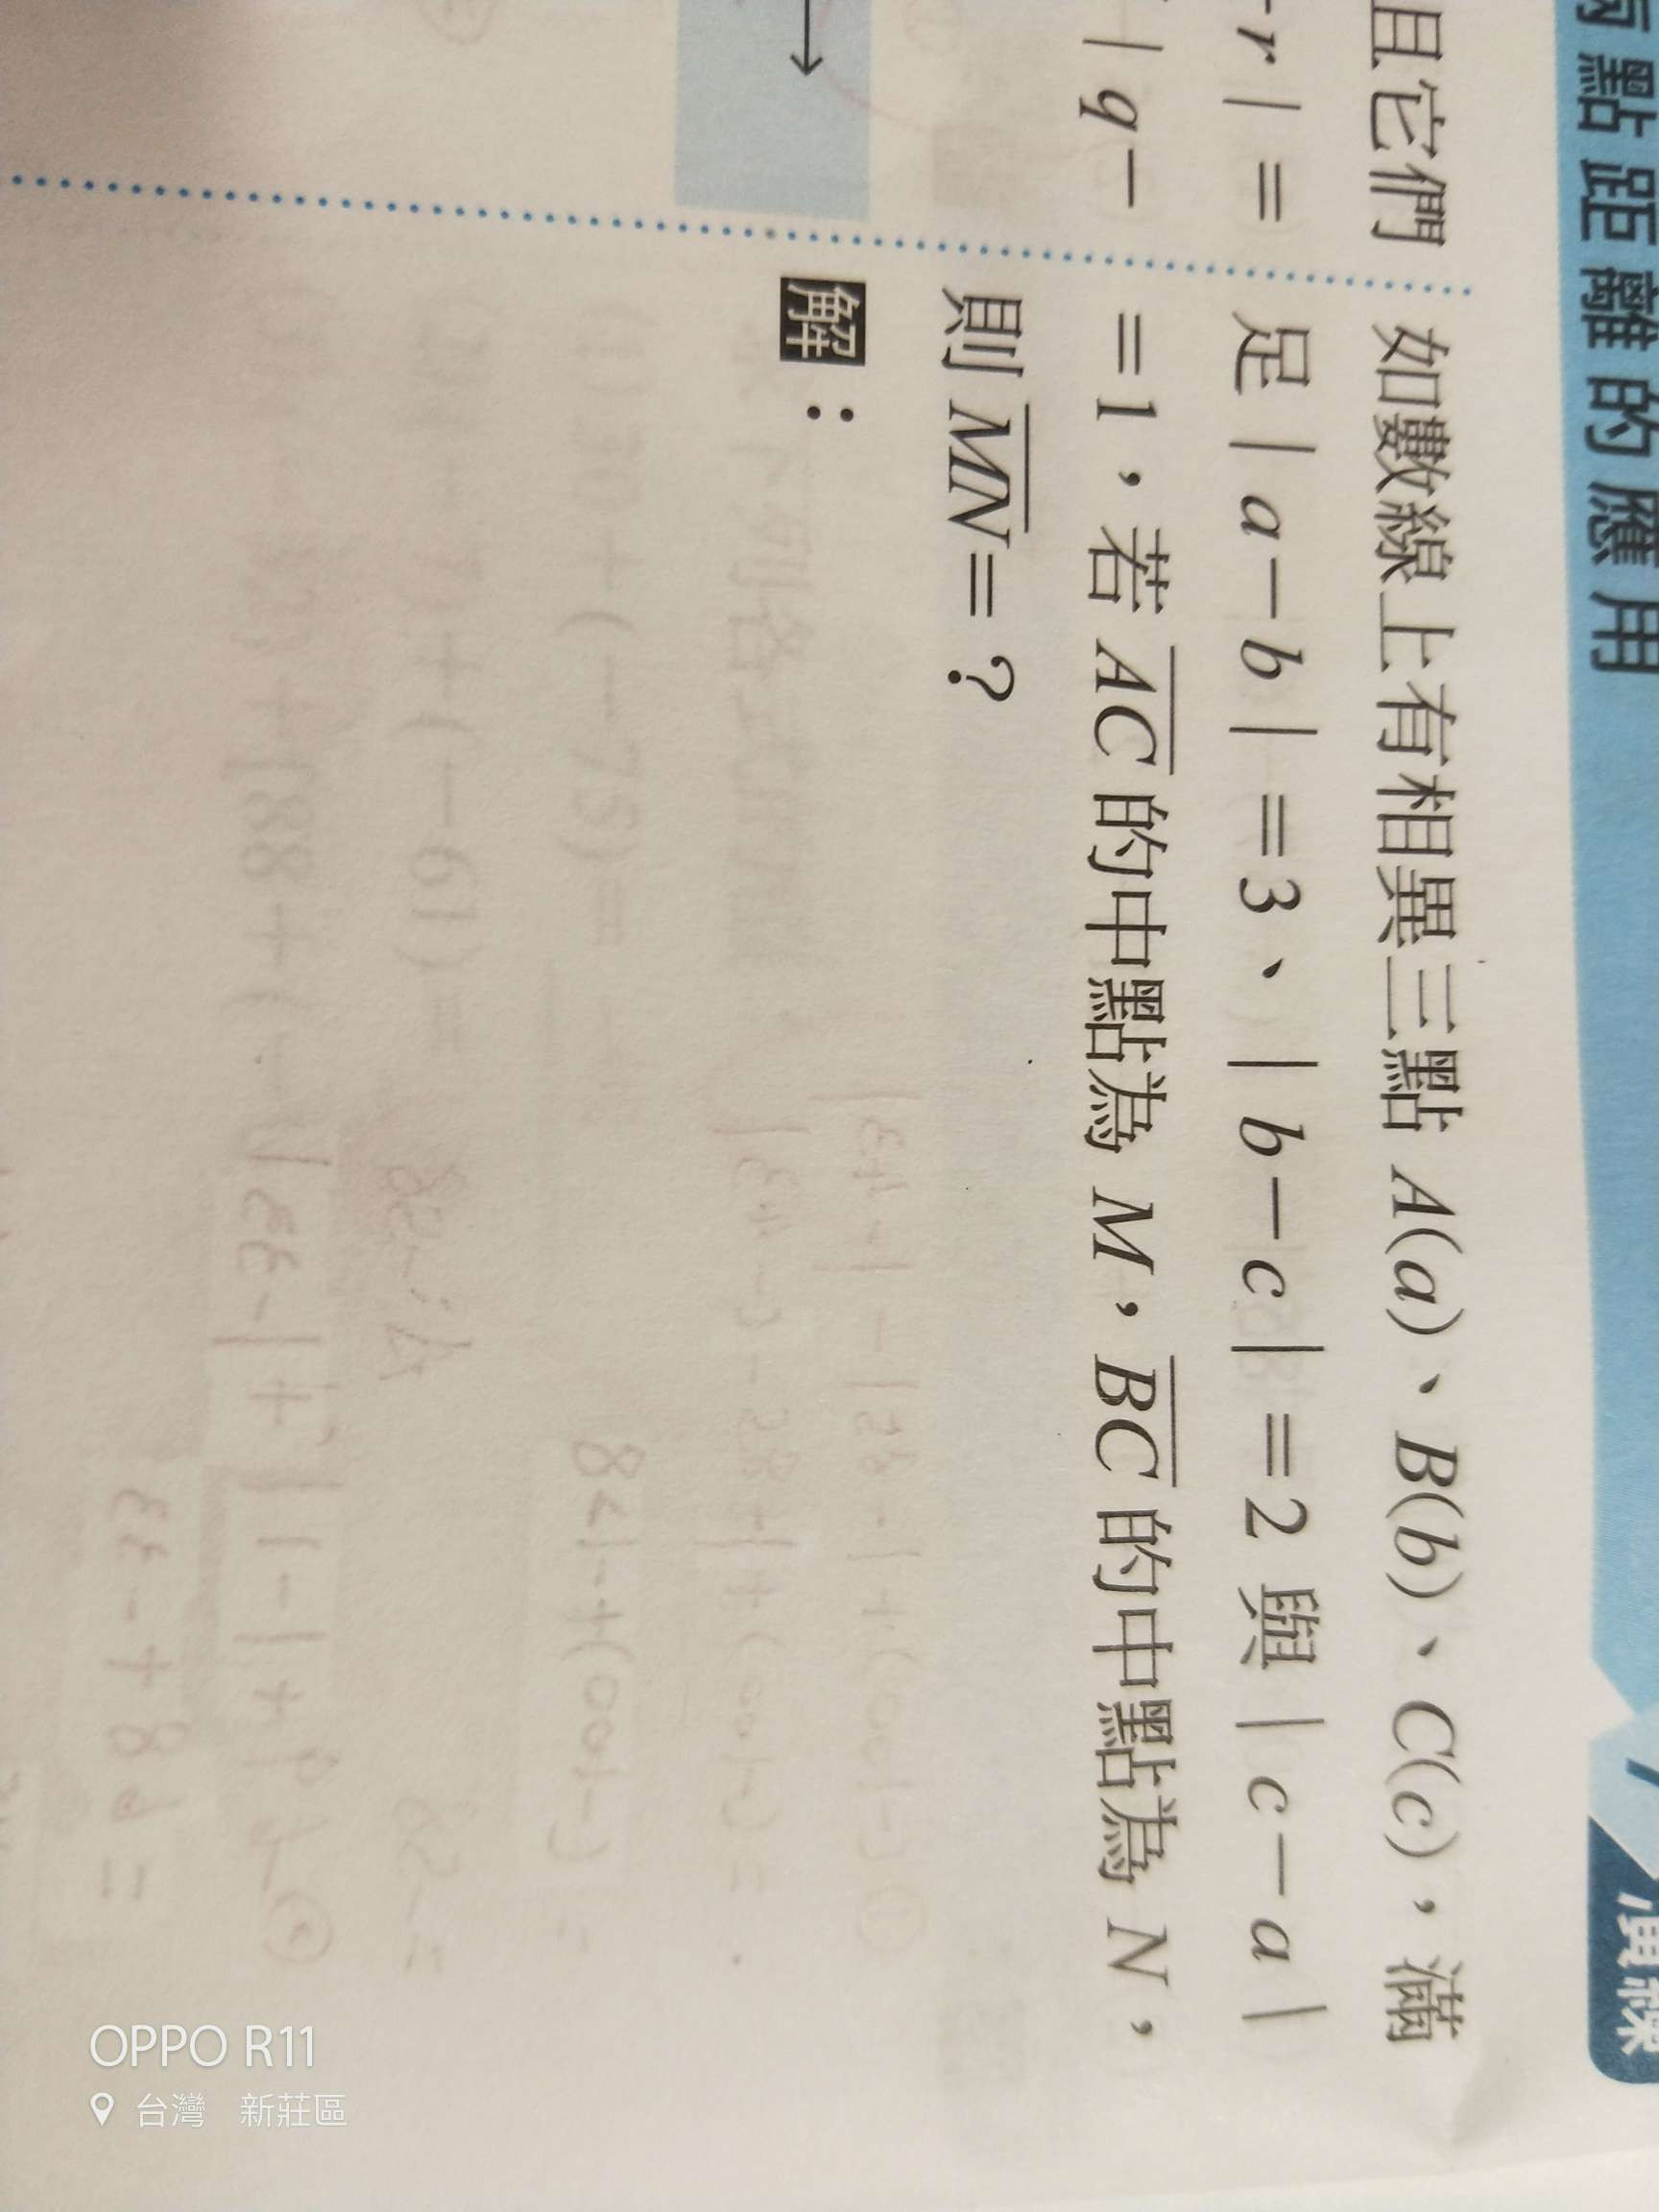 兩點距離的應用
演練
且它們
-r|=
|q-
如數線上有相異三點 A(a)、B(b)、C(c),滿
足|a-b|=3、|b-c|=2 與|c-a|
=1,若 AC 的中點為 M,BC 的中點為 N,
則 MN=?
解:
OPPO R11
台灣 新莊區